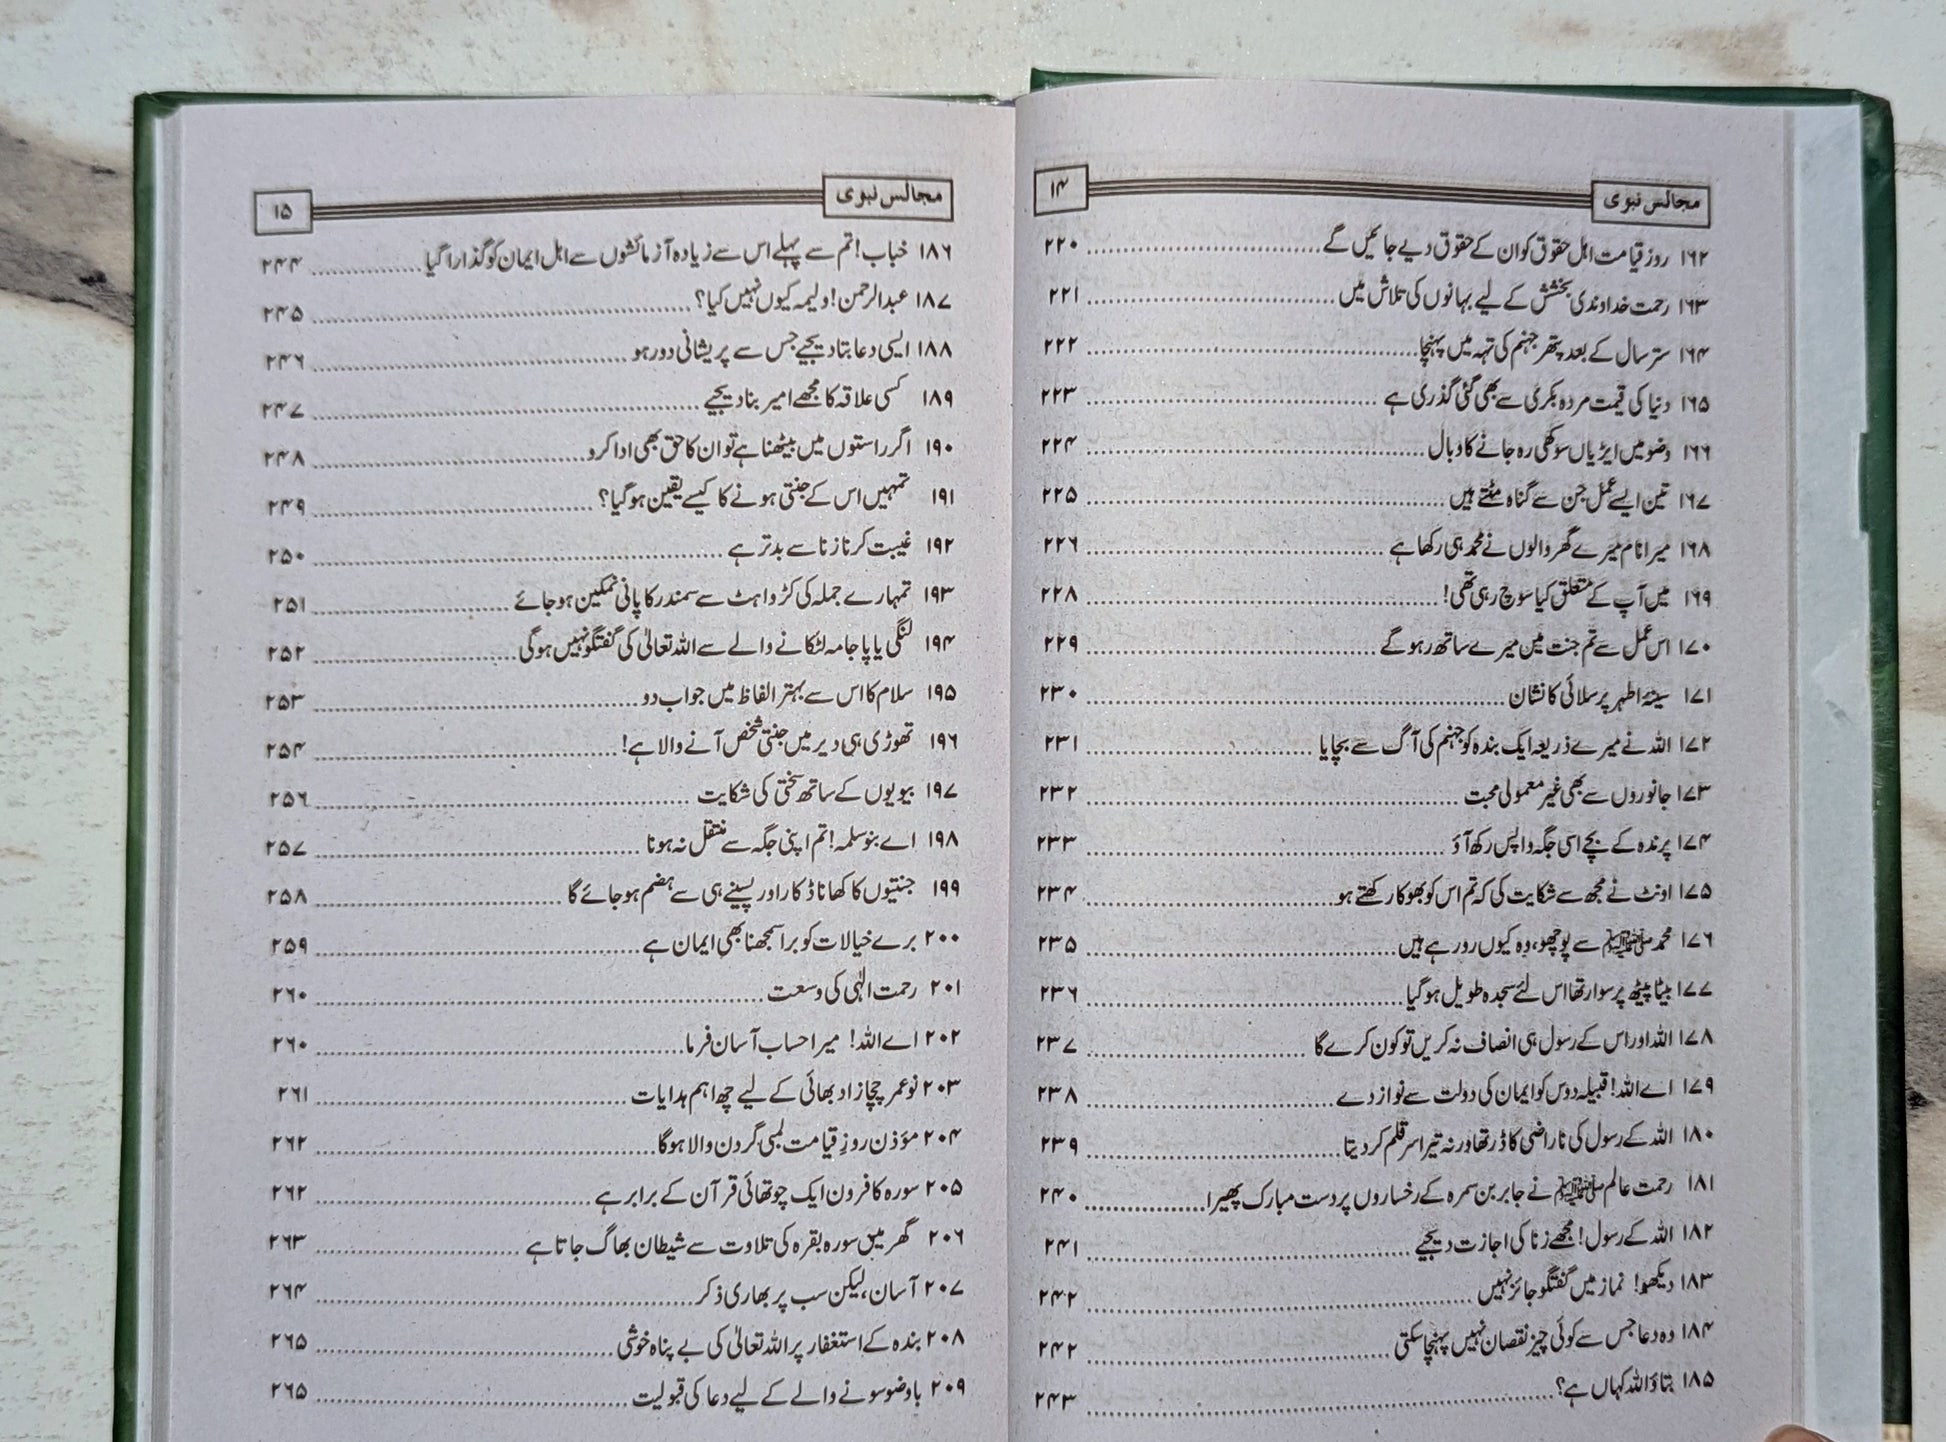 مجالس نبوی ۱۴
۱۶۲ روز قیامت اہل حقوق کو ان کے حقوق دیے جائیں گے ۲۲۰
۱۶۳ رحمت خداوندی بخشش کے لیے بہانوں کی تلاش میں ۲۲۱
۱۶۴ ستر سال کے بعد پتھر جہنم کی تہہ میں پہنچا ۲۲۲
۱۶۵ دنیا کی قیمت مردہ بکری سے بھی گئی گذری ہے ۲۲۳
۱۶۶ وضو میں ایڑیاں سوکھی رہ جانے کا وبال ۲۲۴
۱۶۷ تین ایسے عمل جن سے گناہ مٹتے ہیں ۲۲۵
۱۶۸ میرا نام میرے گھر والوں نے محمد ہی رکھا ہے ۲۲۶
۱۶۹ میں آپ کے متعلق کیا سوچ رہی تھی! ۲۲۸
۱۷۰ اس عمل سے تم جنت میں میرے ساتھ رہو گے ۲۲۹
۱۷۱ سینۂ اطہر پر سلائی کا نشان ۲۳۰
۱۷۲ اللہ نے میرے ذریعہ ایک بندہ کو جہنم کی آگ سے بچایا ۲۳۱
۱۷۳ جانوروں سے بھی غیر معمولی محبت ۲۳۲
۱۷۴ پرندہ کے بچے اسی جگہ واپس رکھ آؤ ۲۳۳
۱۷۵ اونٹ نے مجھ سے شکایت کی کہ تم اس کو بھوکا رکھتے ہو ۲۳۴
۱۷۶ محمد ﷺ سے پوچھو، وہ کیوں رو رہے ہیں ۲۳۵
۱۷۷ بیٹا پیٹھ پر سوار تھا اس لئے سجدہ طویل ہو گیا ۲۳۶
۱۷۸ اللہ اور اس کے رسول ہی انصاف نہ کریں تو کون کرے گا ۲۳۷
۱۷۹ اے اللہ! قبیلہ دوس کو ایمان کی دولت سے نواز دے ۲۳۸
۱۸۰ اللہ کے رسول کی ناراضی کا ڈر تھا ورنہ تیرا سر قلم کر دیتا ۲۳۹
۱۸۱ رحمت عالم ﷺ نے جابر بن سمرہ کے رخساروں پر دست مبارک پھیرا ۲۴۰
۱۸۲ اللہ کے رسول! مجھے زنا کی اجازت دیجیے ۲۴۱
۱۸۳ دیکھو! نماز میں گفتگو جائز نہیں ۲۴۲
۱۸۴ وہ دعا جس سے کوئی چیز نقصان نہیں پہنچا سکتی ۲۴۲
۱۸۵ بتاؤ اللہ کہاں ہے؟ ۲۴۳
مجالس نبوی ۱۵
۱۸۶ خباب! تم سے پہلے اس سے زیادہ آزمائشوں سے اہل ایمان کو گذارا گیا ۲۴۴
۱۸۷ عبدالرحمن! ولیمہ کیوں نہیں کیا؟ ۲۴۵
۱۸۸ ایسی دعا بتا دیجیے جس سے پریشانی دور ہو ۲۴۶
۱۸۹ کسی علاقہ کا مجھے امیر بنا دیجیے ۲۴۷
۱۹۰ اگر راستوں میں بیٹھنا ہے تو ان کا حق بھی ادا کرو ۲۴۸
۱۹۱ تمہیں اس کے جنتی ہونے کا کیسے یقین ہو گیا؟ ۲۴۹
۱۹۲ غیبت کرنا زنا سے بدتر ہے ۲۵۰
۱۹۳ تمہارے جملہ کی کڑواہٹ سے سمندر کا پانی نمکین ہو جائے ۲۵۱
۱۹۴ لنگی یا پاجامہ لٹکانے والے سے اللہ تعالیٰ کی گفتگو نہیں ہوگی ۲۵۲
۱۹۵ سلام کا اس سے بہتر الفاظ میں جواب دو ۲۵۳
۱۹۶ تھوڑی ہی دیر میں جنتی شخص آنے والا ہے! ۲۵۴
۱۹۷ بیویوں کے ساتھ سختی کی شکایت ۲۵۶
۱۹۸ اے بنو سلمہ! تم اپنی جگہ سے منتقل نہ ہونا ۲۵۷
۱۹۹ جنتیوں کا کھانا ڈکار اور پسینے ہی سے ہضم ہو جائے گا ۲۵۸
۲۰۰ برے خیالات کو برا سمجھنا بھی ایمان ہے ۲۵۹
۲۰۱ رحمت الٰہی کی وسعت ۲۶۰
۲۰۲ اے اللہ! میرا حساب آسان فرما ۲۶۰
۲۰۳ نو عمر چچا زاد بھائی کے لیے چھ اہم ہدایات ۲۶۱
۲۰۴ مؤذن روزِ قیامت لمبی گردن والا ہوگا ۲۶۲
۲۰۵ سورہ کافرون ایک چوتھائی قرآن کے برابر ہے ۲۶۲
۲۰۶ گھر میں سورہ بقرہ کی تلاوت سے شیطان بھاگ جاتا ہے ۲۶۳
۲۰۷ آسان، لیکن سب پر بھاری ذکر ۲۶۴
۲۰۸ بندہ کے استغفار پر اللہ تعالیٰ کی بے پناہ خوشی ۲۶۵
۲۰۹ باوضو سونے والے کے لیے دعا کی قبولیت ۲۶۵